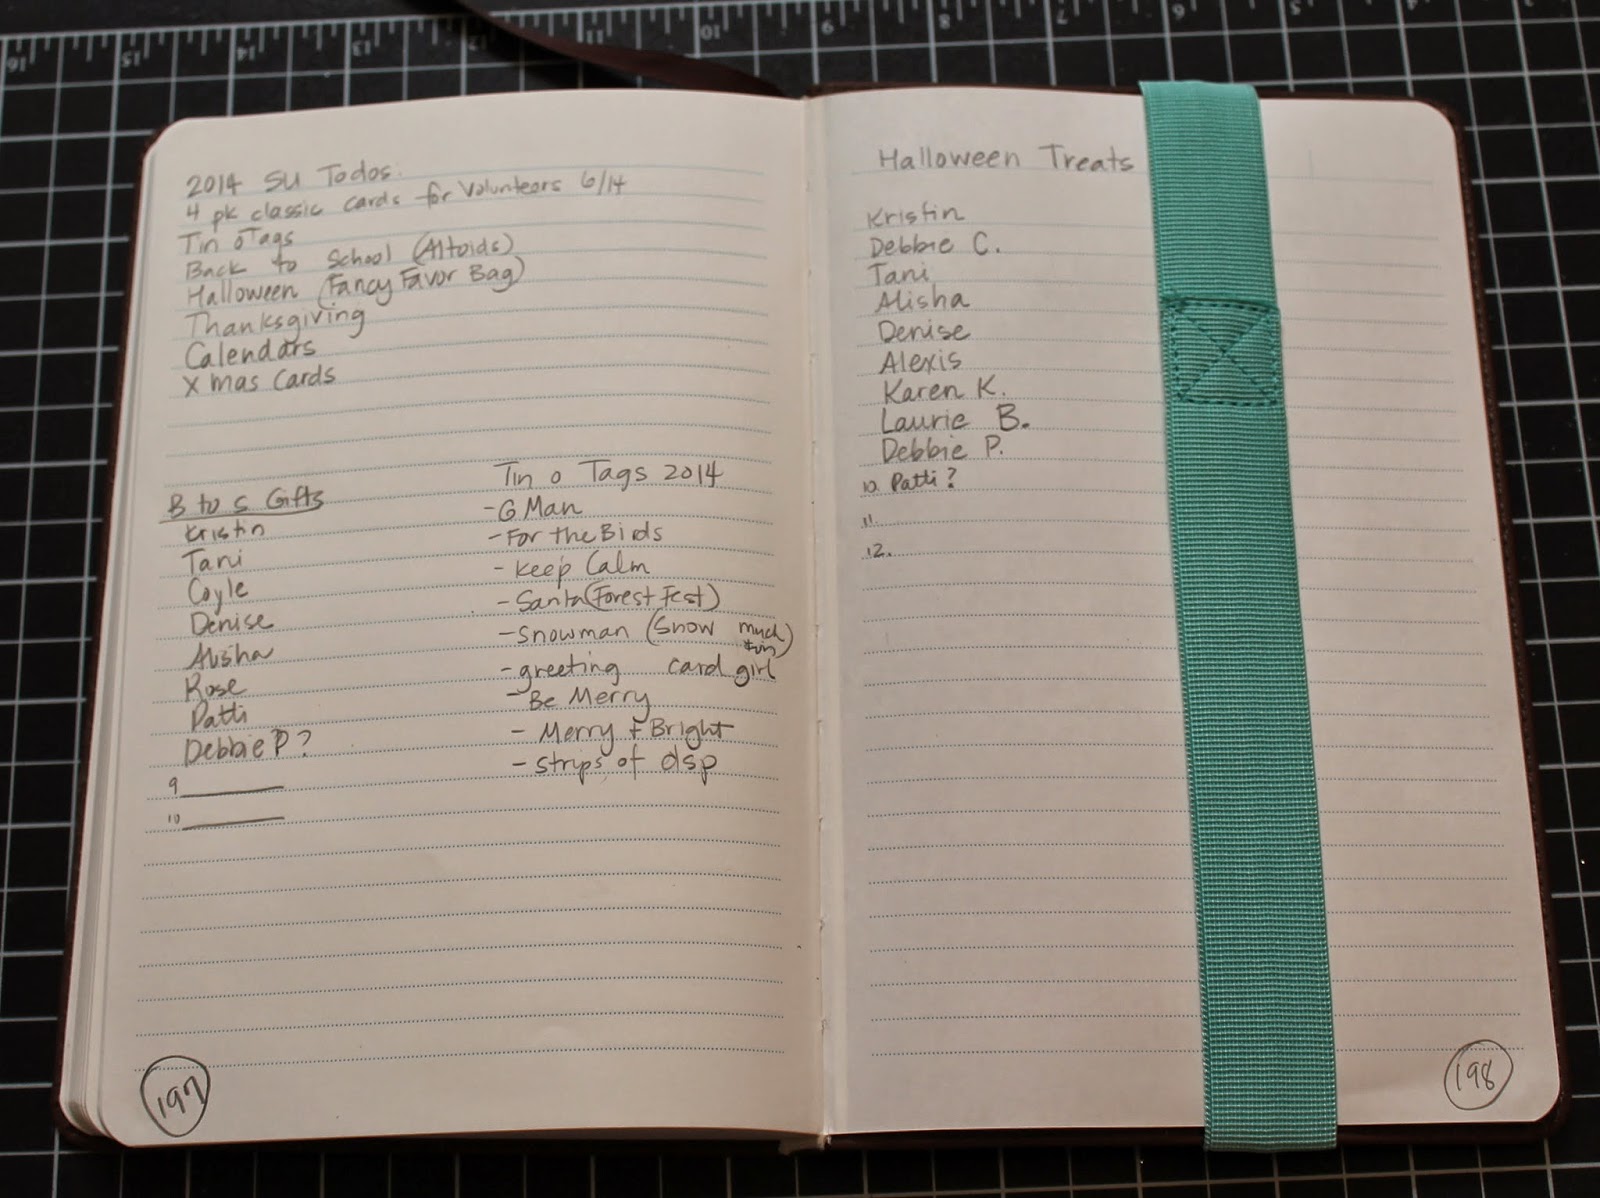 2014 SU Todos.
4 pk classic cards for Volunteers 6/14
Tin o Tags
Back to School (Altoids)
Halloween (Fancy Favor Bag)
Thanksgiving
Calendars
X mas Cards
B to S Gifts
Kristin
Tani
Coyle
Denise
Alisha
Rose
Patti
Debbie P?
9
10
Tin o Tags 2014
- G Man
- For the Birds
- Keep Calm
- Santa (Forest Fest)
- Snowman (Snow much fun)
- greeting card girl
- Be Merry
- Merry + Bright
- Strips of dsp
197
Halloween Treats
Kristin
Debbie C.
Tani
Alisha
Denise
Alexis
Karen K.
Laurie B.
Debbie P.
10. Patti?
11.
12.
198
16 15 14 13 12 11 10 9 8 7 6 5